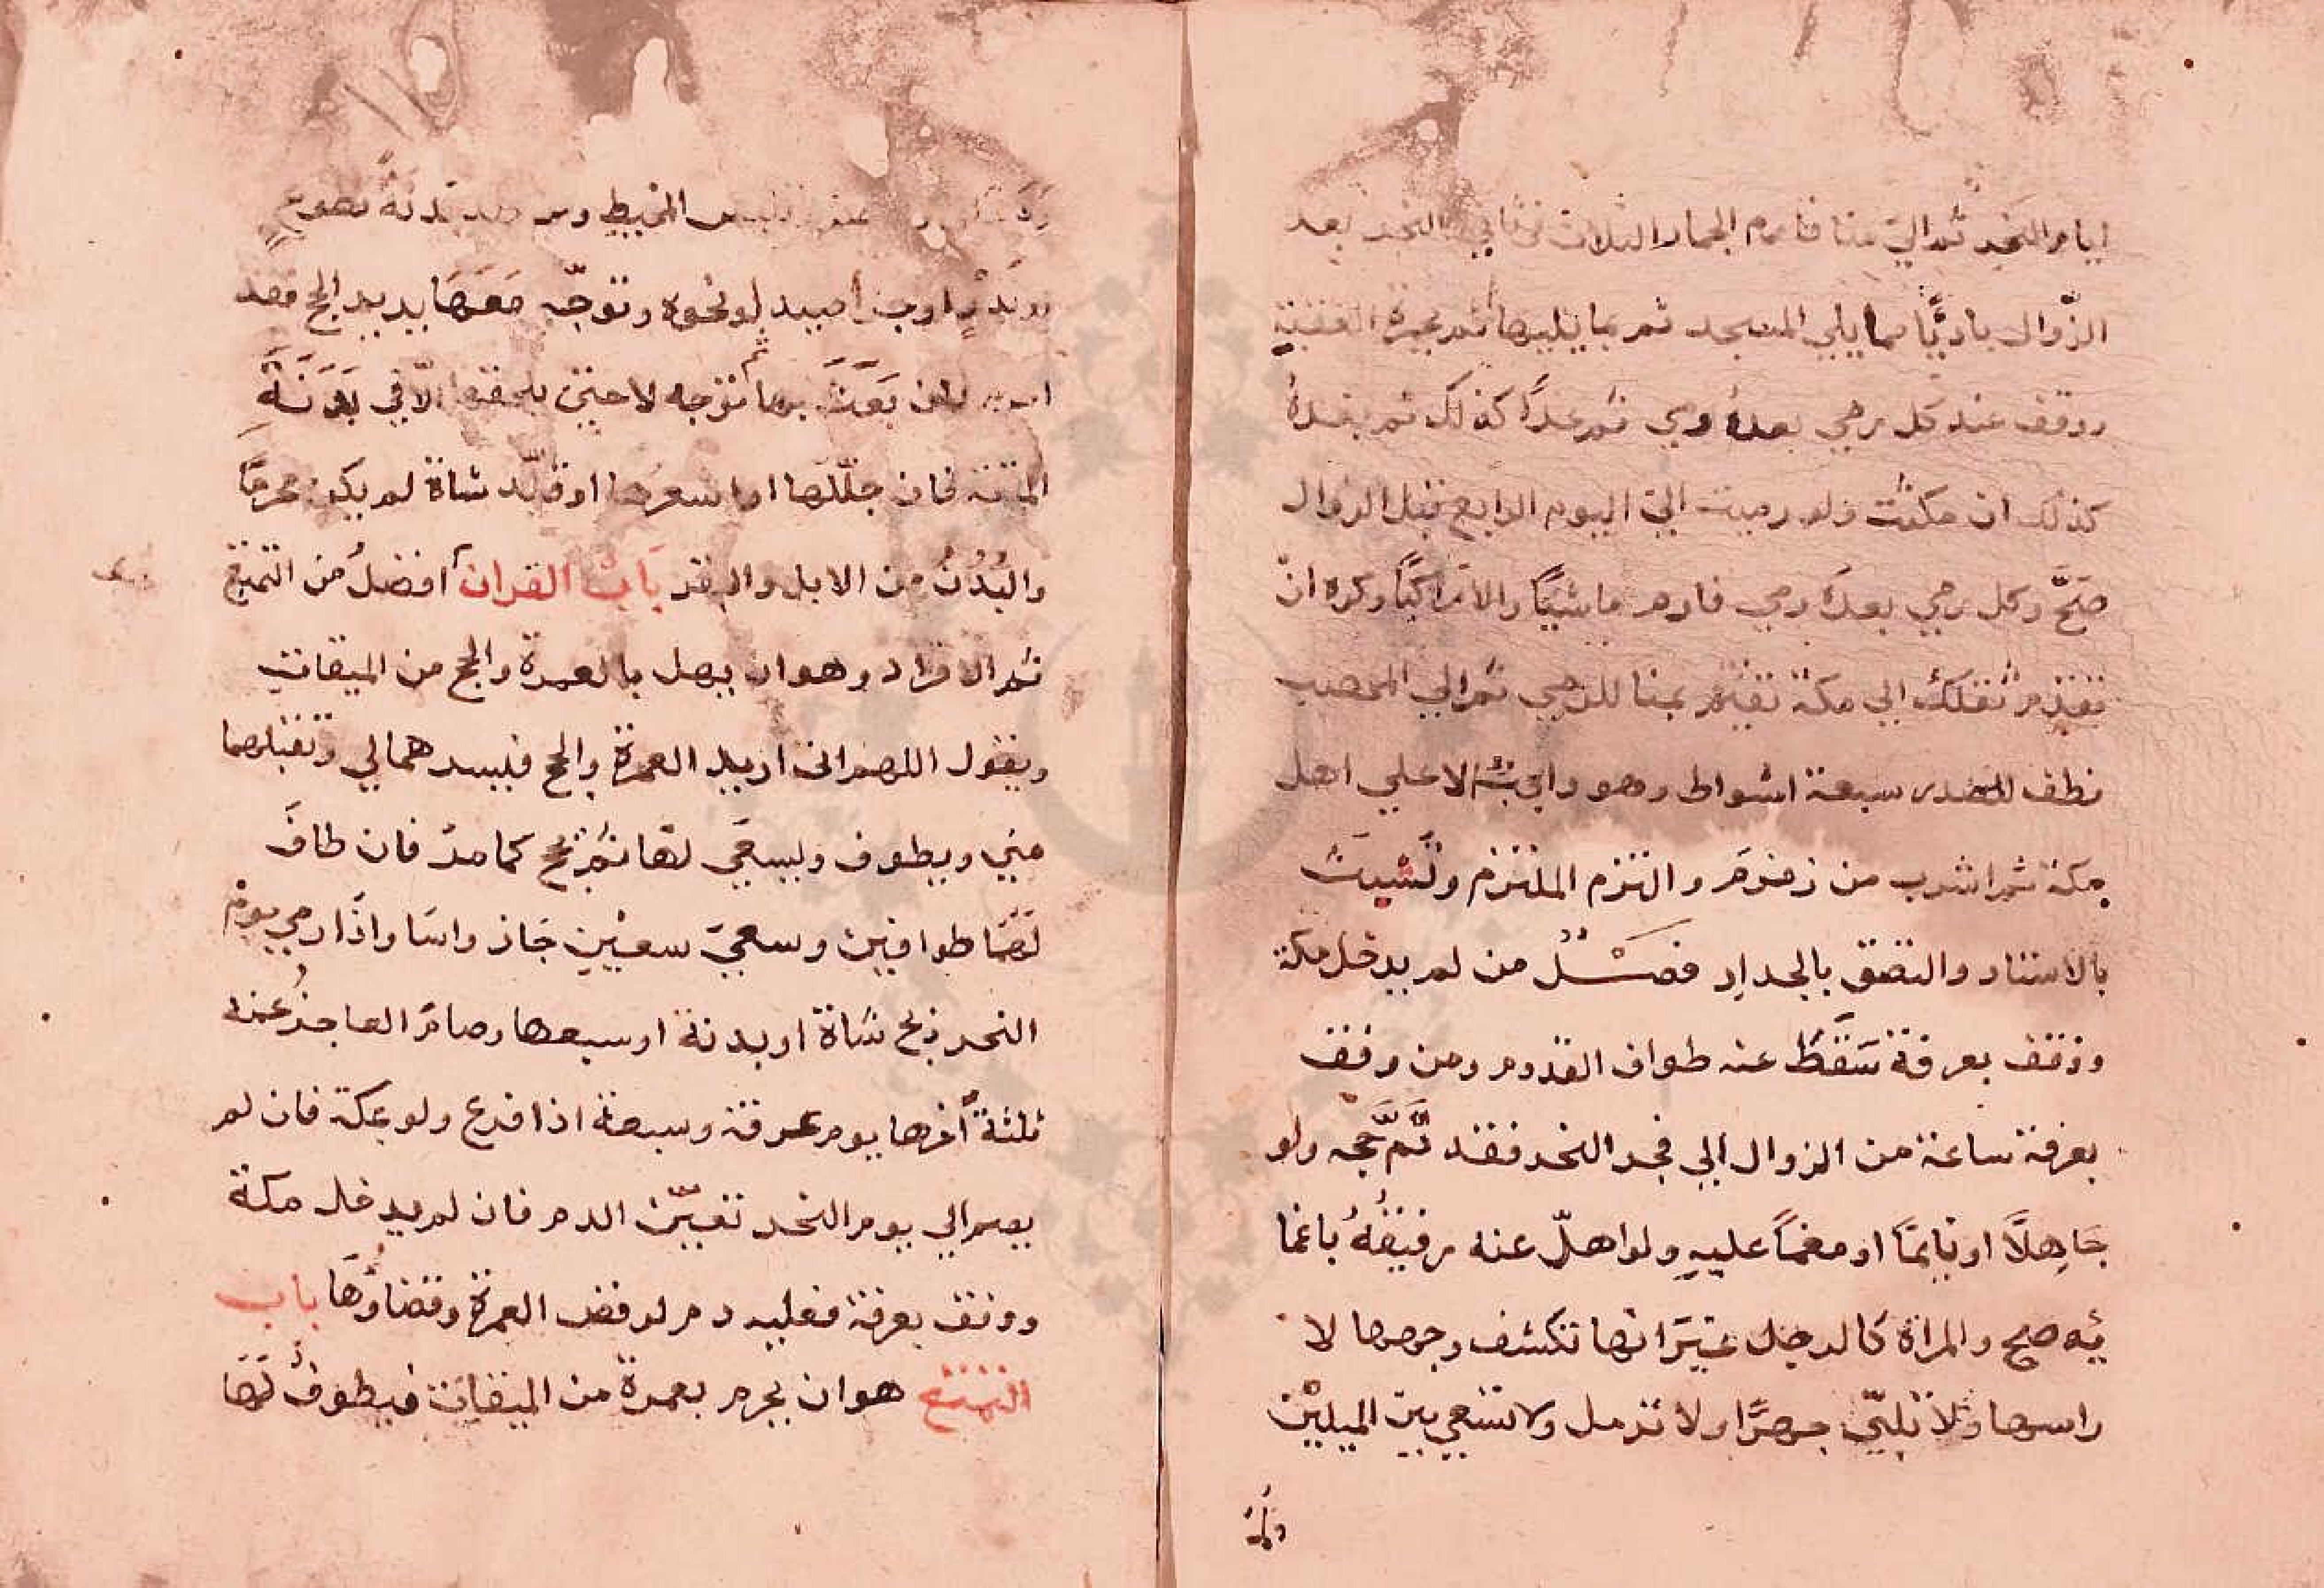 ايام النحر ثم الى منا فارم الجمار الثلاث في ثاني النحر بعد
الزوال باديًا مما يلي المسجد ثم بما يليها ثم بجمرة العقبة
ووقف عند كل رمي بعده رمي ثم غدًا كذلك ثم بعدهُ
كذلك ان مكثت ولو رميت في اليوم الرابع قبل الزوال
صَحَّ وكل رمي بعدَه رمي فارم ماشيًا والا راكبًا وكره انْ
تقدم ثقلك الي مكة تقيم بمنا للرمي ثم الي المحصب
فطف للصدر سبعة اشواط وهو واجب الا على اهل
مكة ثم اشرب من زمزم والتزم الملتزم وتشبث
بالاستار والتصق بالجدار فصل من لم يدخل مكة
ووقف بعرفة سَقَطَ عنه طواف القدوم ومن وقف
بعرفة ساعة من الزوال الي فجر النحر فقد تَمَّ حجه ولو
جَاهِلًا او نايمًا او مغمًا عليهِ ولو اهلّ عنه رفيقهُ باغما
يه صح والمراة كالرجل غيرَ انها تكشف وجهها لا
راسها ولا تلبيّ جهرًا ولا ترمل ولا تسعي بين الميلين
المخيط ومن قلد بدنةً تطوع
او نذرٍ او جزا صيدٍ او نحوه وتوجّه مَعَهَا يريد الحج فقد
احرم فان بَعَثَ بها ثم توجه لا حتى يلحقها الّا في بَدَنَةِ
المتعة فان جلّلها او اشعرها او قلّد شاة لم يكن محرمًا
والبُدْنُ من الابل والبقر بَابُ القران افضلُ من التمتع
ثم الافراد وهو ان يهل بالعمرة والحج من الميقات
ويقول اللهم اني اريد العمرة والحج فيسرهما لي وتقبلهما
مني ويطوف ويسعَي لهَا ثم يحج كما مرّ فان طافَ
لهَمَا طوافين وسعيَ سعيْين جَاز واسَا واذَا رمي يومْ
النحر ذبح شاة او بدنة او سبعها وصامَ العاجزُ عنه
ثلثةً اخرها يوم عرفة وسبعة اذا فرغ ولو بمكة فان لم
يصم الي يوم النحر تعيّن الدم فان لم يدخل مكة
ووقف بعرفة فعليه دم لرفض العمرة وقضاؤهَا باب
التمتع هو ان يحرم بعمرة من الميقات فيطوفُ لَهَا